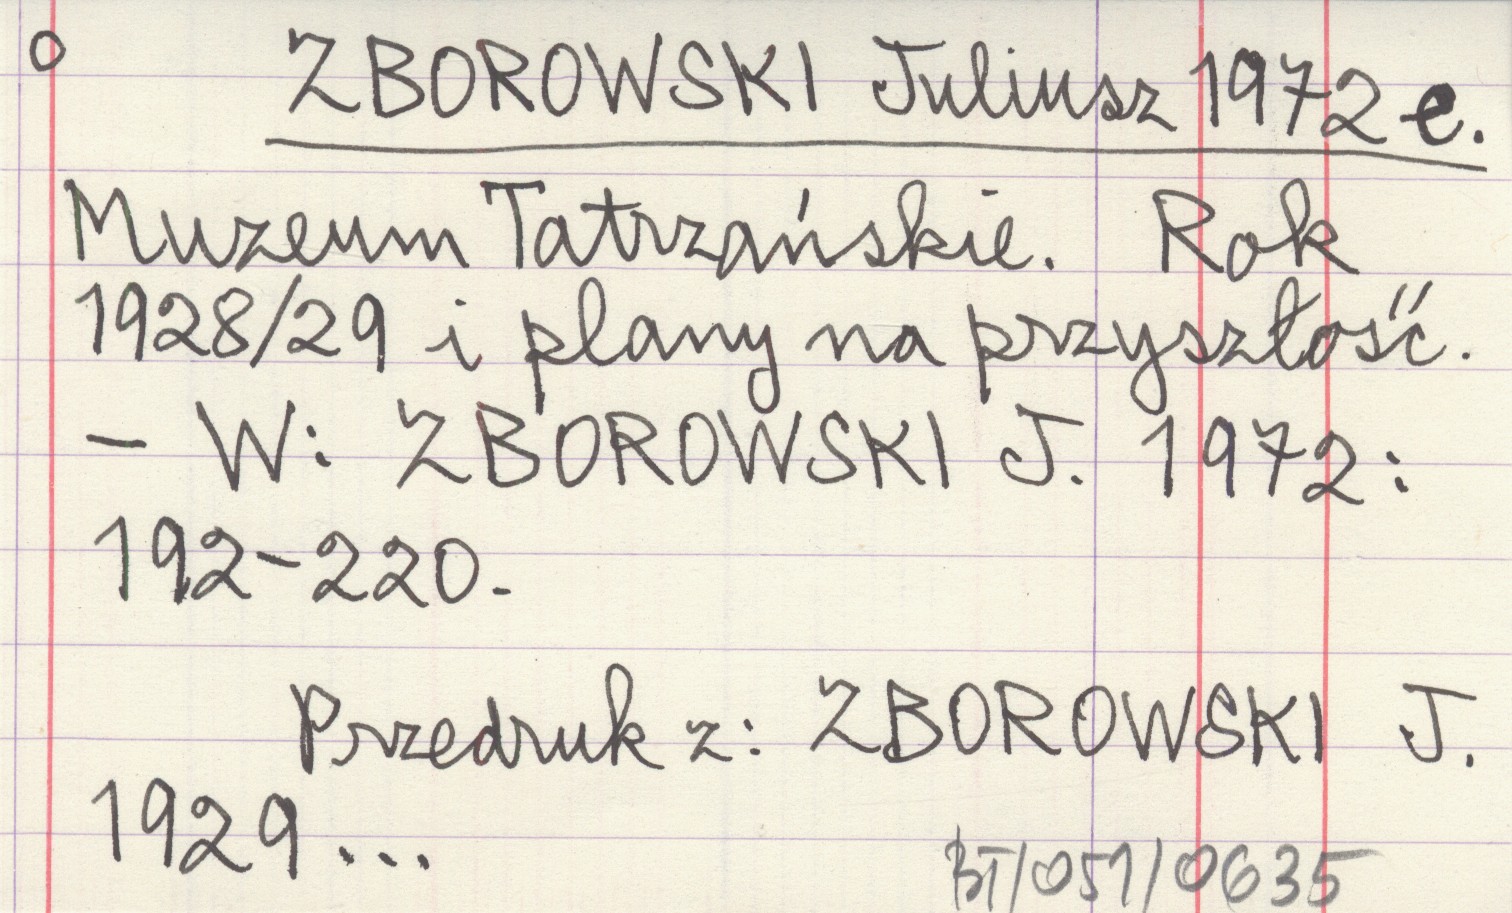 o ZBOROWSKI Juliusz 1972 e.
Muzeum Tatrzańskie. Rok
1928/29 i plany na przyszłość.
- W: ZBOROWSKI J. 1972:
192-220.
Przedruk z: ZBOROWSKI J.
1929...
BT/051/0635